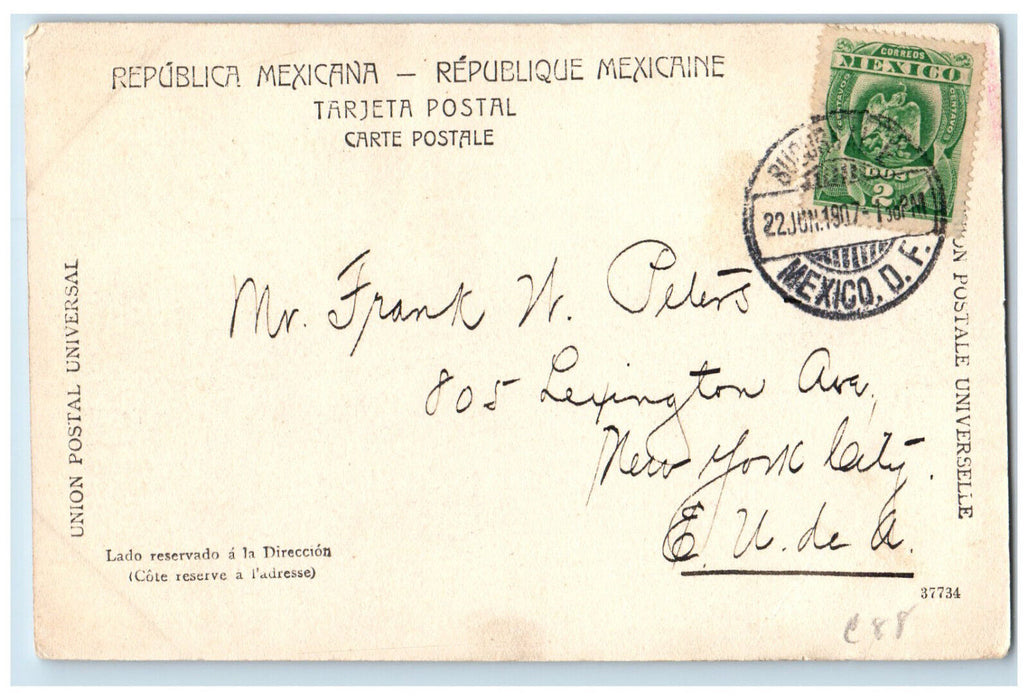 REPÚBLICA MEXICANA — RÉPUBLIQUE MEXICAINE
TARJETA POSTAL
CARTE POSTALE
CORREOS
MEXICO
CENTAVOS
CENTAVOS
DOS
2
22 JUN. 1907 - 1 30 PM
MEXICO, D. F.
Mr. Frank W. Peters
805 Lexington Ave,
New York City.
E. U. de A.
UNION POSTAL UNIVERSAL
ON POSTALE UNIVERSELLE
Lado reservado á la Dirección
(Côte reserve a l'adresse)
37734
c88